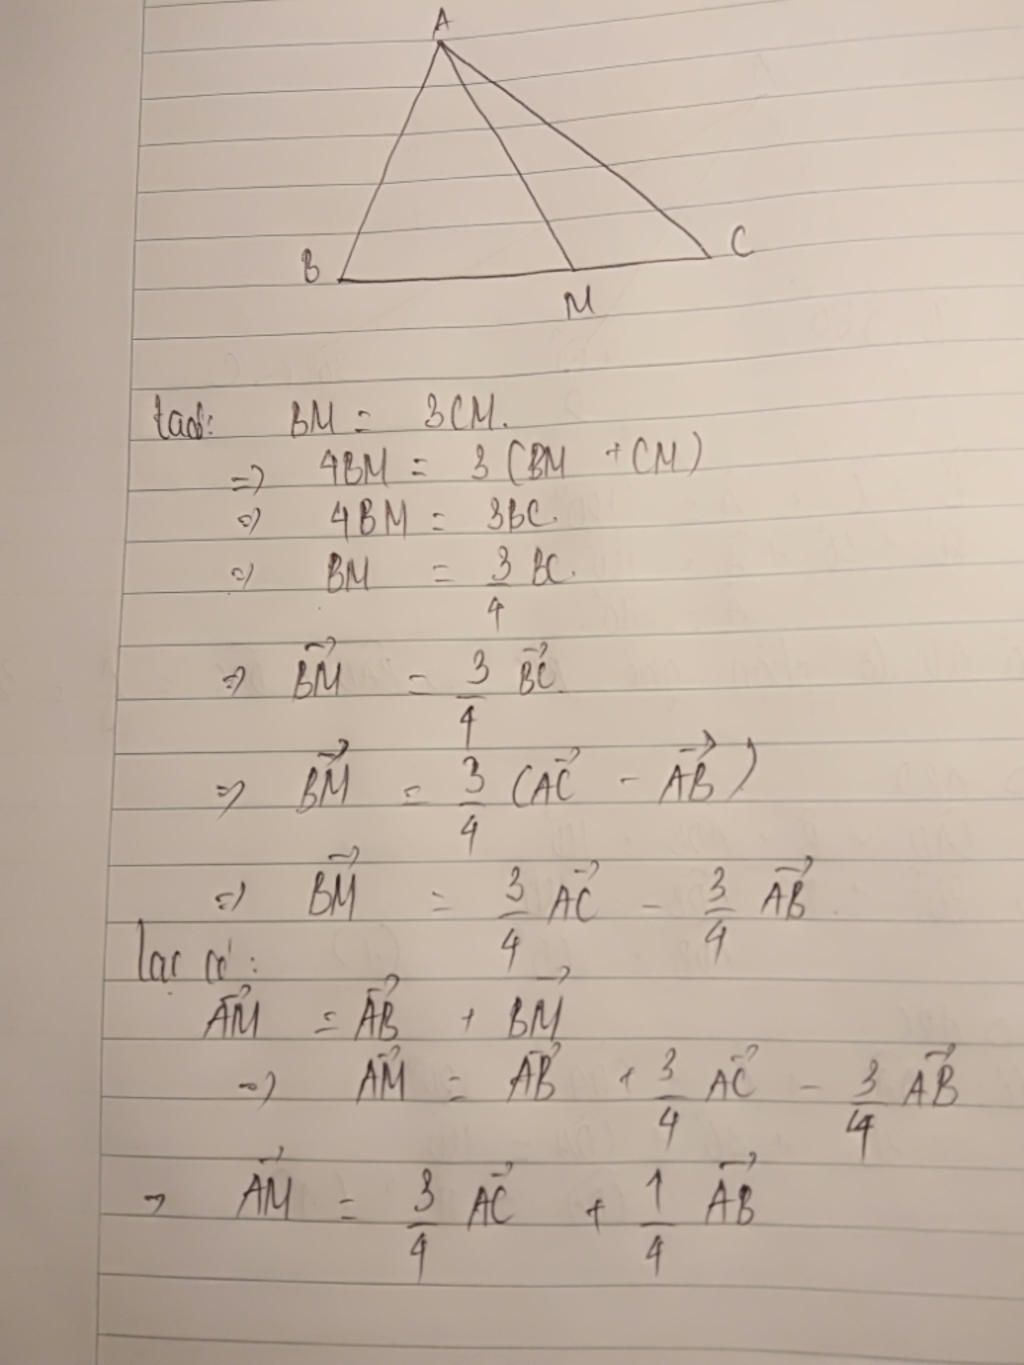 A
B
C
M
ta có: BM = 3CM.
=> 4BM = 3 (BM + CM)
=> 4BM = 3BC.
=> BM = 3/4 BC.
=> \vec{BM} = 3/4 \vec{BC}.
=> \vec{BM} = 3/4 (\vec{AC} - \vec{AB})
=> \vec{BM} = 3/4 \vec{AC} - 3/4 \vec{AB}.
lại có:
\vec{AM} = \vec{AB} + \vec{BM}
=> \vec{AM} = \vec{AB} + 3/4 \vec{AC} - 3/4 \vec{AB}
=> \vec{AM} = 3/4 \vec{AC} + 1/4 \vec{AB}